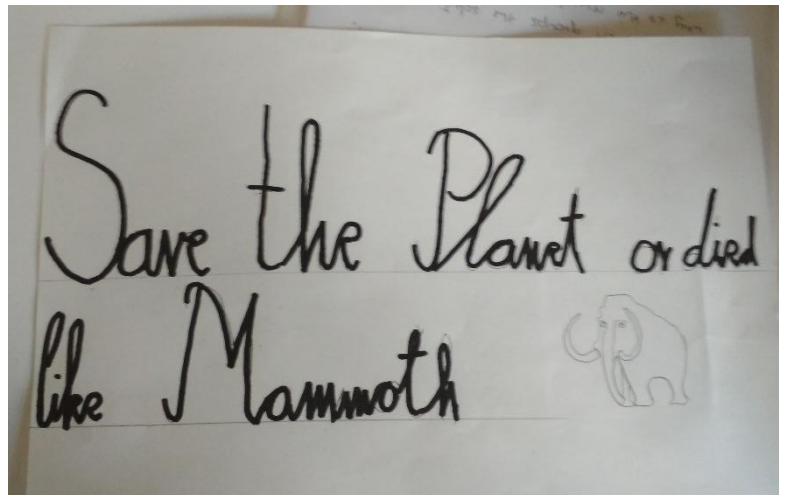 Save the Planet or died
like Mammoth